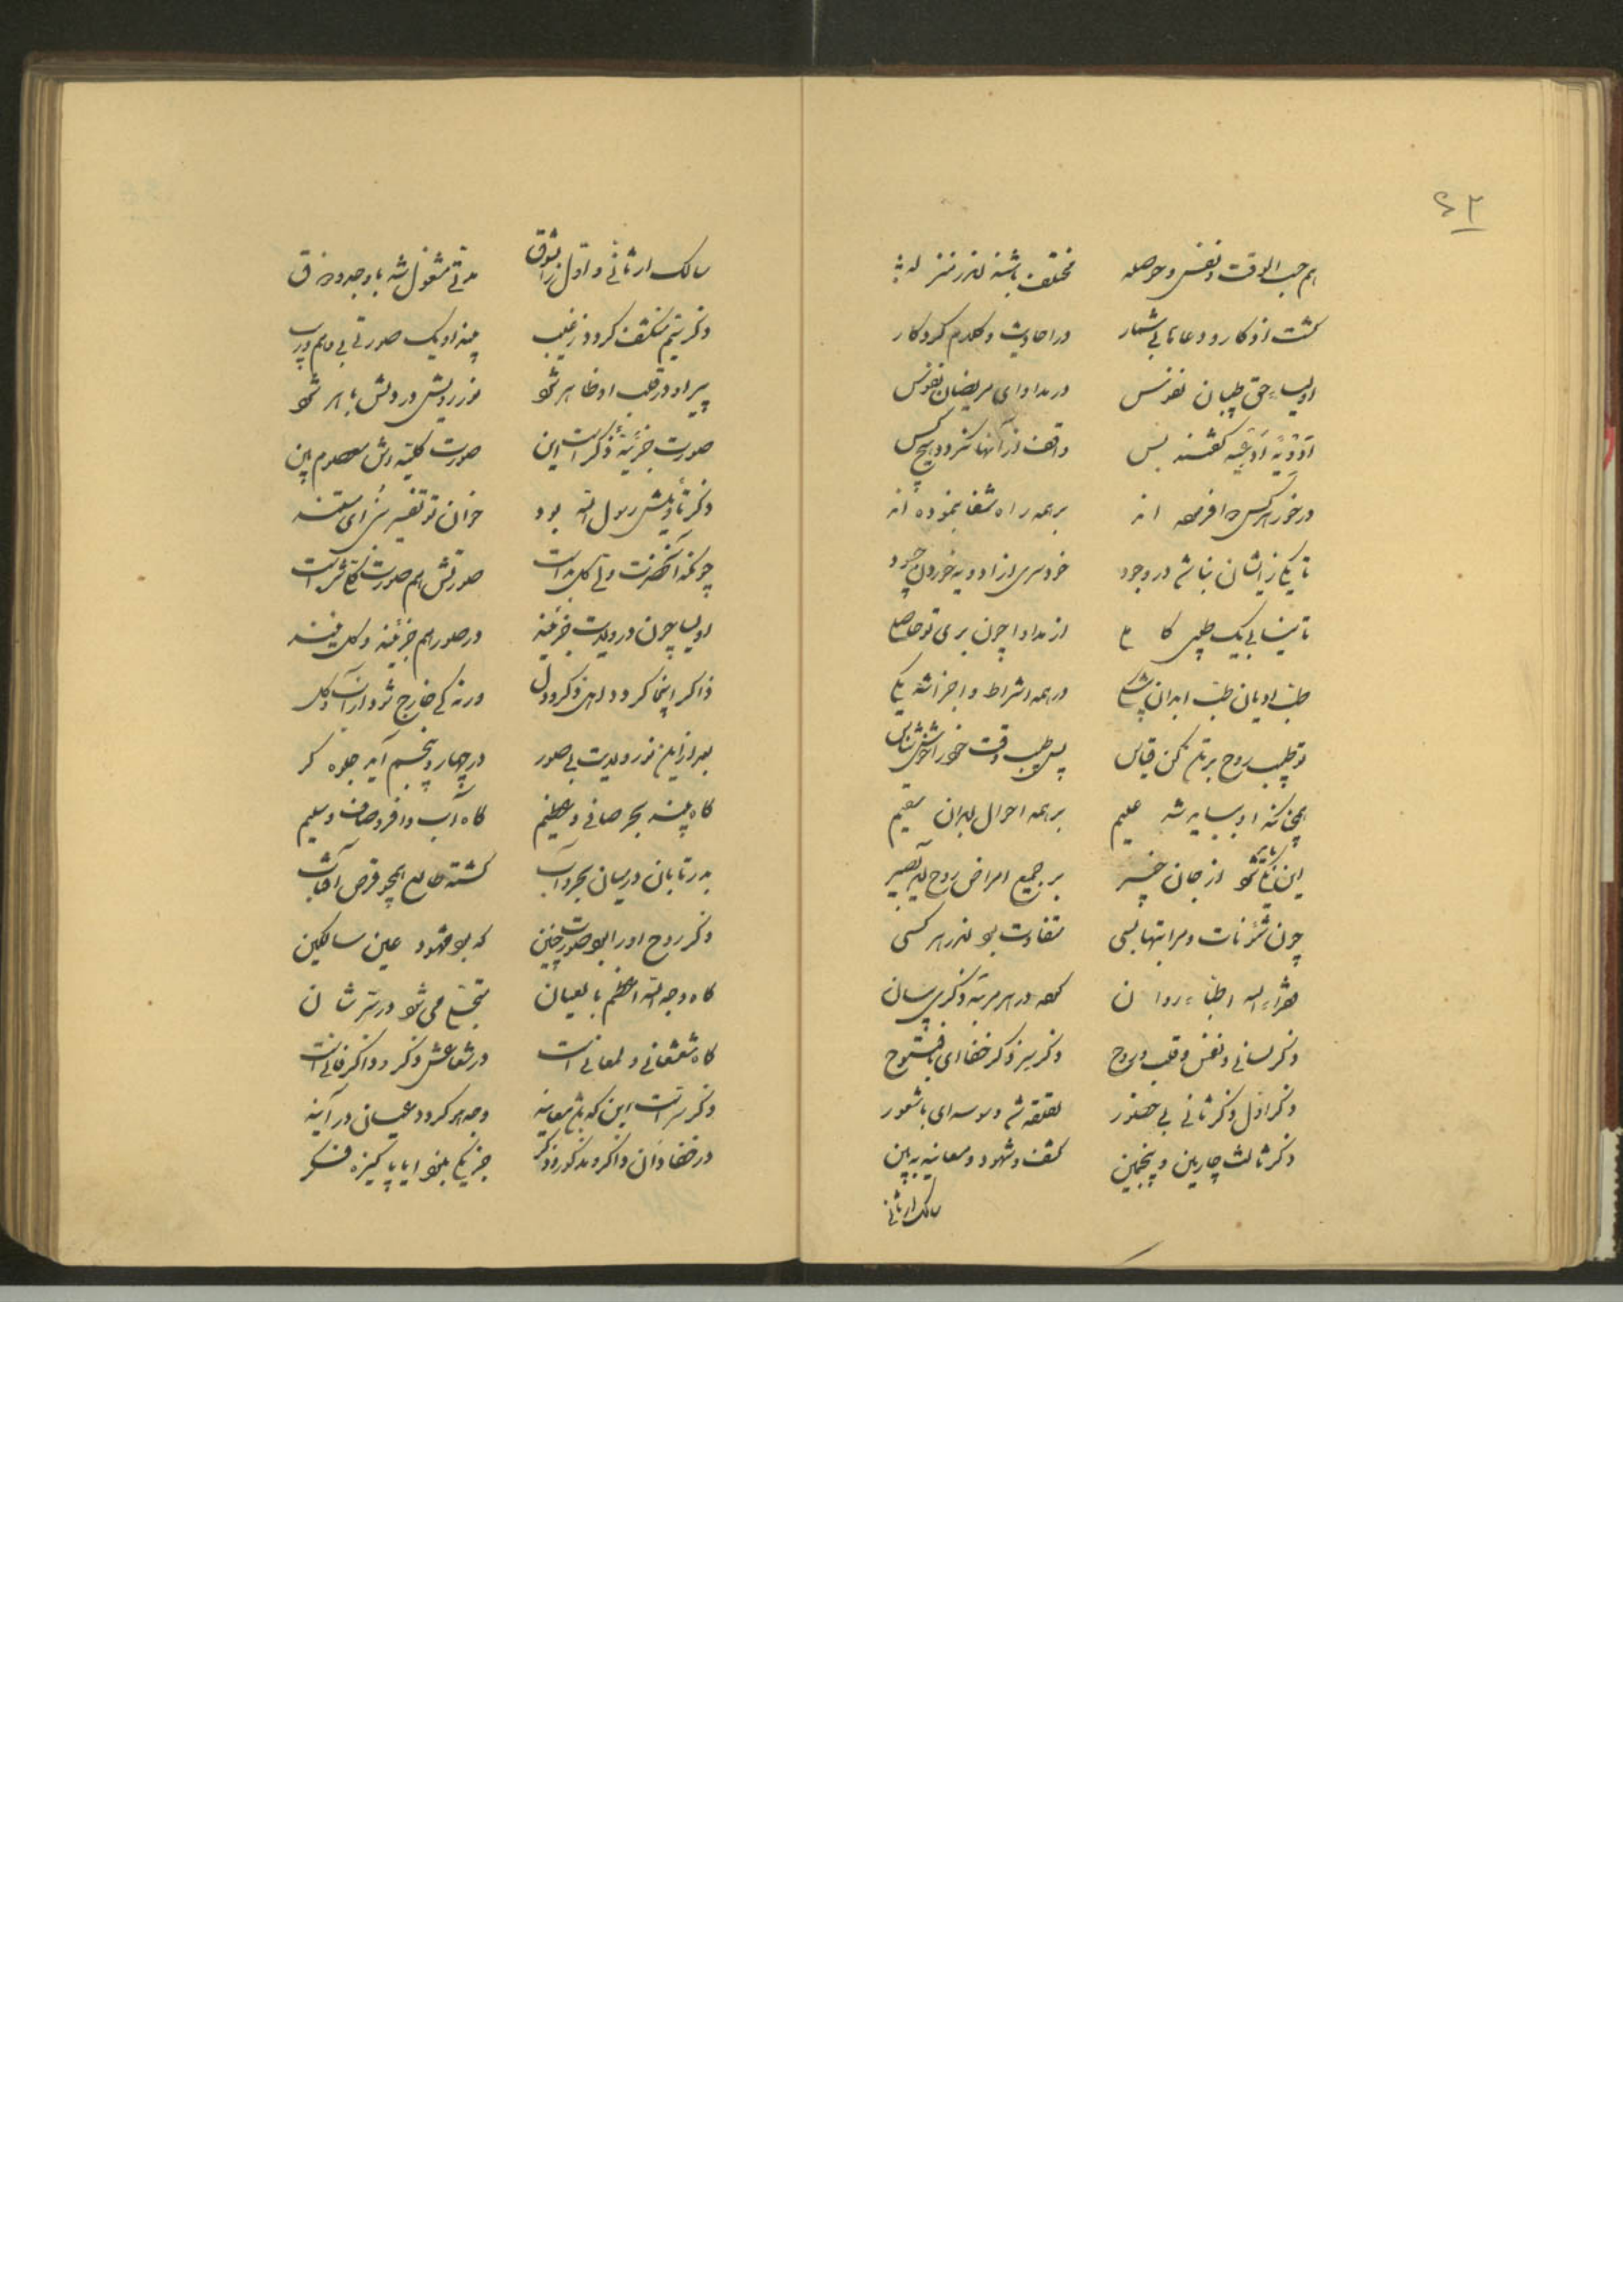 هم حسب الوقت و نفس و حوصله مختلف باشند اندر منزله
گشت اذکار و دعاها بی شمار در احادیث و کلام کردگار
اولیاء حق طبیبان نفوس در مداوای مریضان نفوس
ادویه ادعیه گفتند بس واقف از آنها نگردد هیچ کس
در خور هر کس اند بر همه راه شفا بنموده اند
تا یکی زایشان نباشد در وجود خودسری از ادویه خوردن چه سود
تا نیابی یک طبیب کاملی از مداوا چون بری تو حاصلی
طب ادیان طب ابدان در همه اشراط و اجزا شد یکی
تو طبیب روح بر تن کن قیاس پس طبیب وقت خود را خوش شناس
همچنانکه او بباید شد علیم بر همه احوال ابدان سقیم
این یکی باید شود از جان خبیر بر جمیع امراض روح آمد بصیر
چون شئونات و مراتبها بسی متفاوت بود اندر هر کسی
اطباء روان در هر مرتبه ذکری بیان
ذکر لسانی و نفس و قلب و روح ذکر سر و ذکر خفا ای با فتوح
ذکر اول ذکر ثانی بی حضور لقلقه شد وسوسه ای با شعور
ذکر ثالث چارمین و پنجمین کشف و شهود و معاینه ببین
سالک ار ثانی
سالک ار ثانی و اول را بشوق مدتی مشغول شد با وجد و ذوق
ذکر سیم منکشف گردد ز غیب بیند او یک صورتی بی وهم و ریب
پیر او در قلب او ظاهر شود نور رویش در دلش باهر شود
صورت جزئیه ذکر است این صورت کلیه اش معصوم بین
ذکر تأویلش رسول الله بود خوان تو تفسیرش ای سند
چونکه آنحضرت ولی کل بد است صورتش هم صورت کلی شد است
اولیا چون در ولایت جزئیند در صور هم جزئیند و کل نیند
ذاکر اینجا گردد اهل ذکر و دل ورنه کی خارج شود از آب و گل
بعد ازین نور ولایت بی صور در چهار و پنجم آید جلوه گر
گاه بیند بحر صافی و عظیم گاه آب وافر و صاف و سلیم
بدر تابان در میان بحر و آب گشته طالع همچو قرص آفتاب
ذکر روح او را بود صورت چنین که بود مشهود عین سالکین
گاه وجه الله اعظم بالعیان متجلی می شود در سر شان
گاه شعشعانی و لمعانی است در شعاعش ذکر و ذاکر فانی است
ذکر سر است این که باشد معاینه وجه هر گردد عیان در آینه
در خفا دان ذاکر و مذکور و ذکر جز یکی نبود ایا پاکیزه فکر